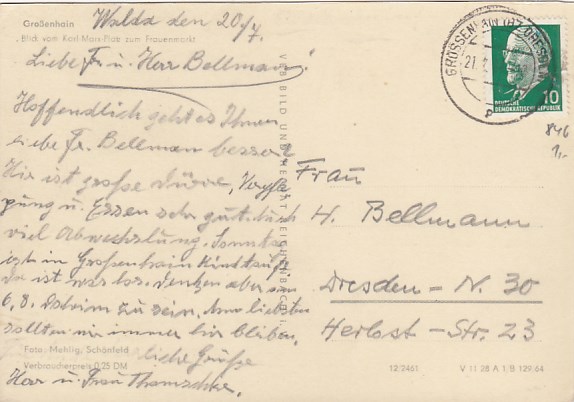 Großenhain
Blick vom Karl-Marx-Platz zum Frauenmarkt
Walda den 20/7.
Liebe Fr. u. Herr Bellmann!
Hoffendlich geht es Ihnen
liebe Fr. Bellman besser?
Hir ist große Dürre, Verpfle
gung u. Essen sehr gut. Auch
viel Abwechslung. Sonntag
in Großenhain
da ist was los. denken aber am
6,8. Daheim zu sein. Am liebsten
sollten wir immer hir bleiben.
liche Grüße
Herr u. Frau
Foto: Mehlig, Schönfeld
Verbraucherpreis 0,25 DM
VEB BILD UND HEIMAT REICHENBACH I. V.
GROSSENHAIN (BZ DRESDEN)
21
10
DEUTSCHE
DEMOKRATISCHE REPUBLIK
846
1,-
Frau
H. Bellmann
Dresden - N. 30
Herbst - Str. 23
12/2461
V 11 28 A 1 B 129 64